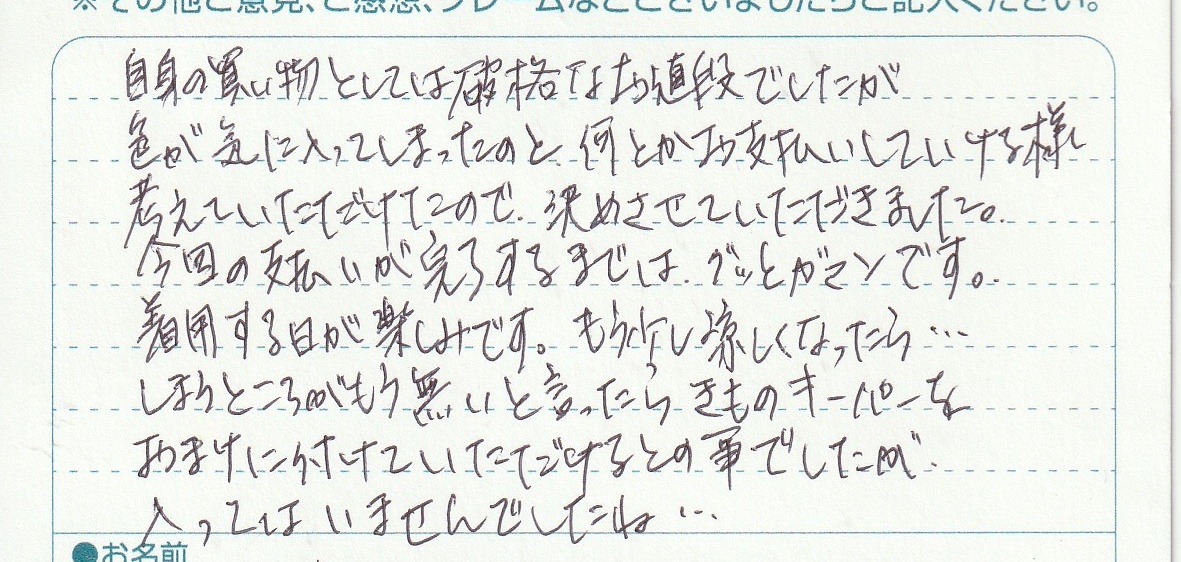 ※その他ご意見、ご感想、クレームなどございましたらご記入ください。
自身の買い物としては破格なお値段でしたが
色が気に入ってしまったのと、何とかお支払いしていける様に
考えていただけたので、決めさせていただきました。
今回の支払いが完了するまでは、グッとガマンです。
着用する日が楽しみです。もう少し涼しくなったら…
しまうところがもう無いと言ったらきものキーパーを
おまけに付けていただけるとの事でしたが、
入ってはいませんでしたね…
●お名前